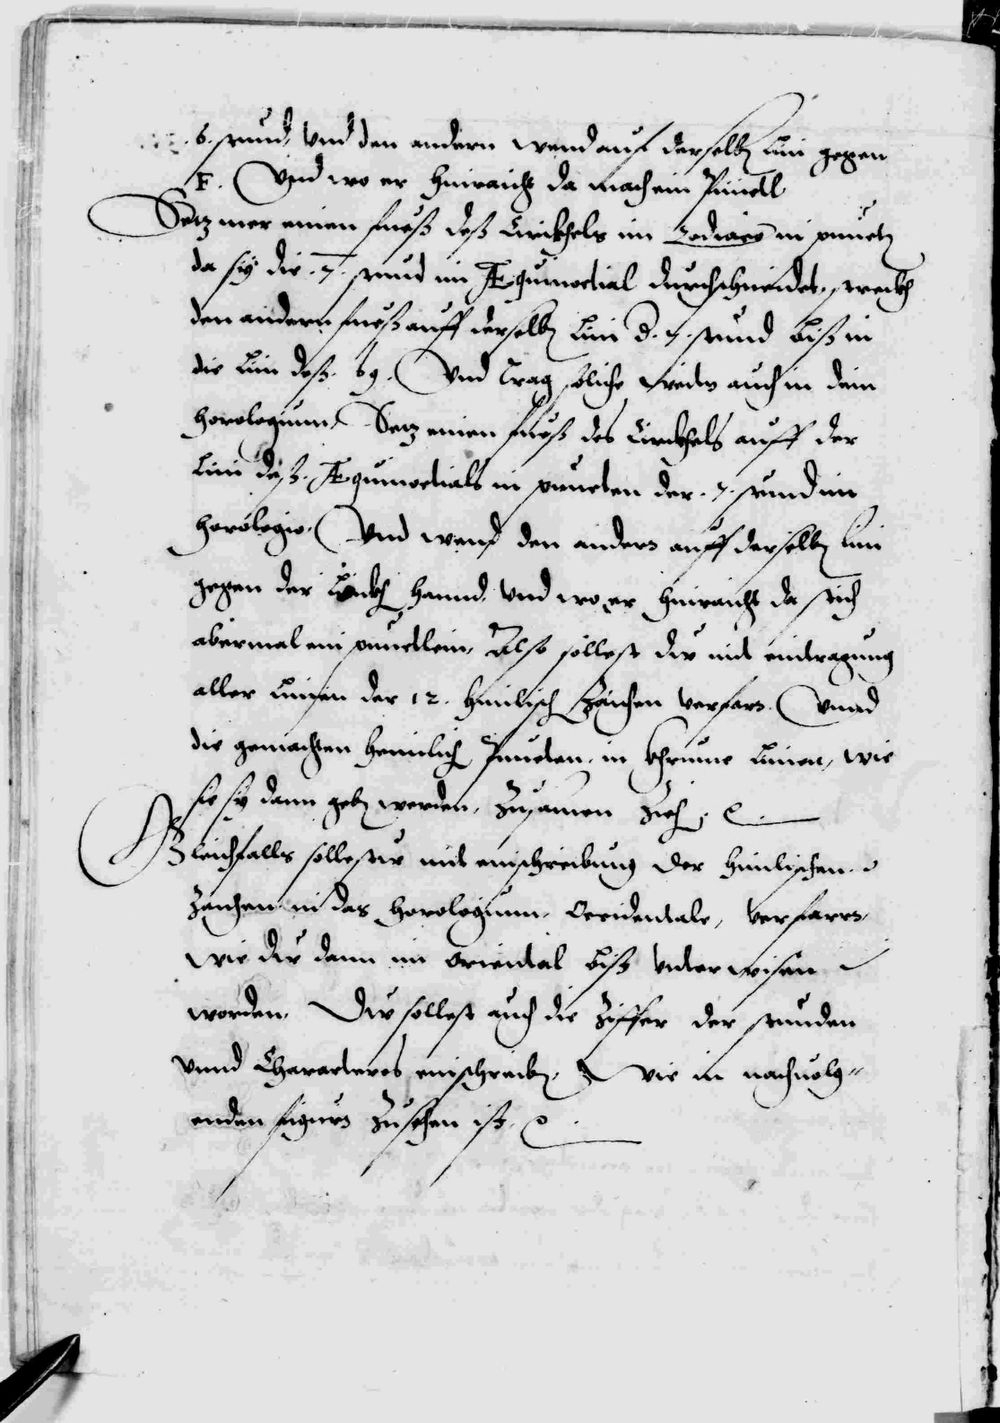 .6. stund, Vnd den andern wend auf derselb[en] Lini gegen
F. Vnd wo er hinraicht da mach ein Punctl
Setz mer einen fueß deß Circkhels im Zodiaco in punct[en]
da sÿ die .7. stund im Æquinoctial durchschneidet, streckh
den andern fueß auff derselb[en] Lini d. 7. stund biß in
die Lini deß 69. Vnd Trag solliche weiten auch in dein
horologium, Setz einen fueß des Circkhels auff der
Lini deß Æquinoctials in puncten der .7. stund im
horologio. Vnd wend den andern auff derselb[en] Lini
gegen der Linckh[en] hannd, vnd wo er hinraicht da stich
abermal ein punctlein, Also sollest du mit eintragung
aller Linien der 12. himlisch[en] Zaichen verfarn. Vnnd
die gemachten heimlich[en] Puncten, in khrume Linien, wie
sie sÿ dann geb[en] werden, Zusamen Zieh[en].
Gleichfalls sollestu mit einschreibung der himlischen
Zaichen in das horologium Occidentale, verfarrn,
wie du dann im Oriental biß vnterwisen
worden. Du sollest auch die Ziffer der stunden
vnnd Characteres einschreib[en], Wie in nachuolg=
enden figurn Zusehen ist.